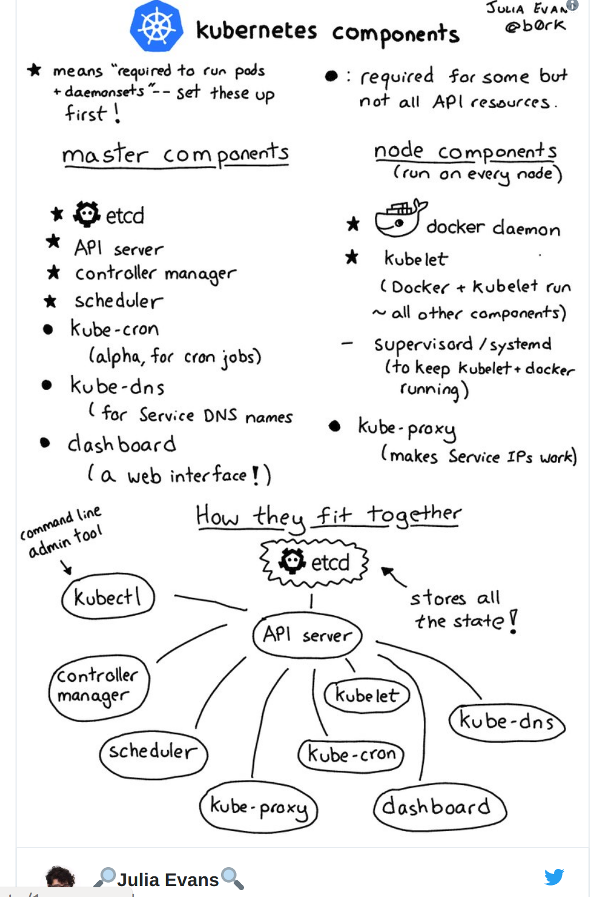 JULIA EVANS
@b0rk
kubernetes components
★ means "required to run pods
+ daemonsets" -- set these up
first!
● : required for some but
not all API resources.
master components
★ etcd
★ API server
★ controller manager
★ scheduler
● kube-cron
(alpha, for cron jobs)
● kube-dns
( for Service DNS names
● dashboard
( a web interface!)
node components
(run on every node)
★ docker daemon
★ kubelet
( Docker + Kubelet run
~ all other components)
– supervisord / systemd
(to keep Kubelet + docker
running)
● kube-proxy
(makes Service IPs work)
How they fit together
command line
admin tool
etcd
kubectl
stores all
the state!
API server
controller
manager
kubelet
kube-dns
scheduler
kube-cron
kube-proxy
dashboard
🔎Julia Evans🔍